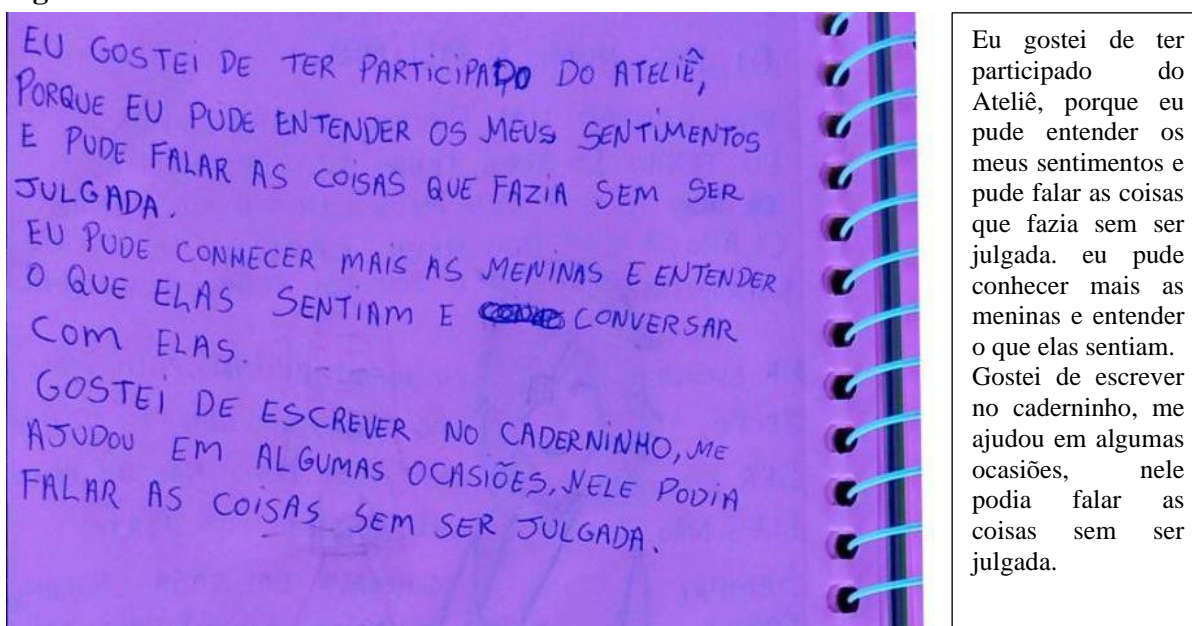 EU GOSTEI DE TER PARTICIPADO DO ATELIÊ,
PORQUE EU PUDE ENTENDER OS MEUS SENTIMENTOS
E PUDE FALAR AS COISAS QUE FAZIA SEM SER
JULGADA.
EU PUDE CONHECER MAIS AS MENINAS E ENTENDER
O QUE ELAS SENTIAM E CONVERSAR
COM ELAS.
GOSTEI DE ESCREVER NO CADERNINHO, ME
AJUDOU EM ALGUMAS OCASIÕES, NELE PODIA
FALAR AS COISAS SEM SER JULGADA.
Eu gostei de ter
participado do
Ateliê, porque eu
pude entender os
meus sentimentos e
pude falar as coisas
que fazia sem ser
julgada. eu pude
conhecer mais as
meninas e entender
o que elas sentiam.
Gostei de escrever
no caderninho, me
ajudou em algumas
ocasiões, nele
podia falar as
coisas sem ser
julgada.